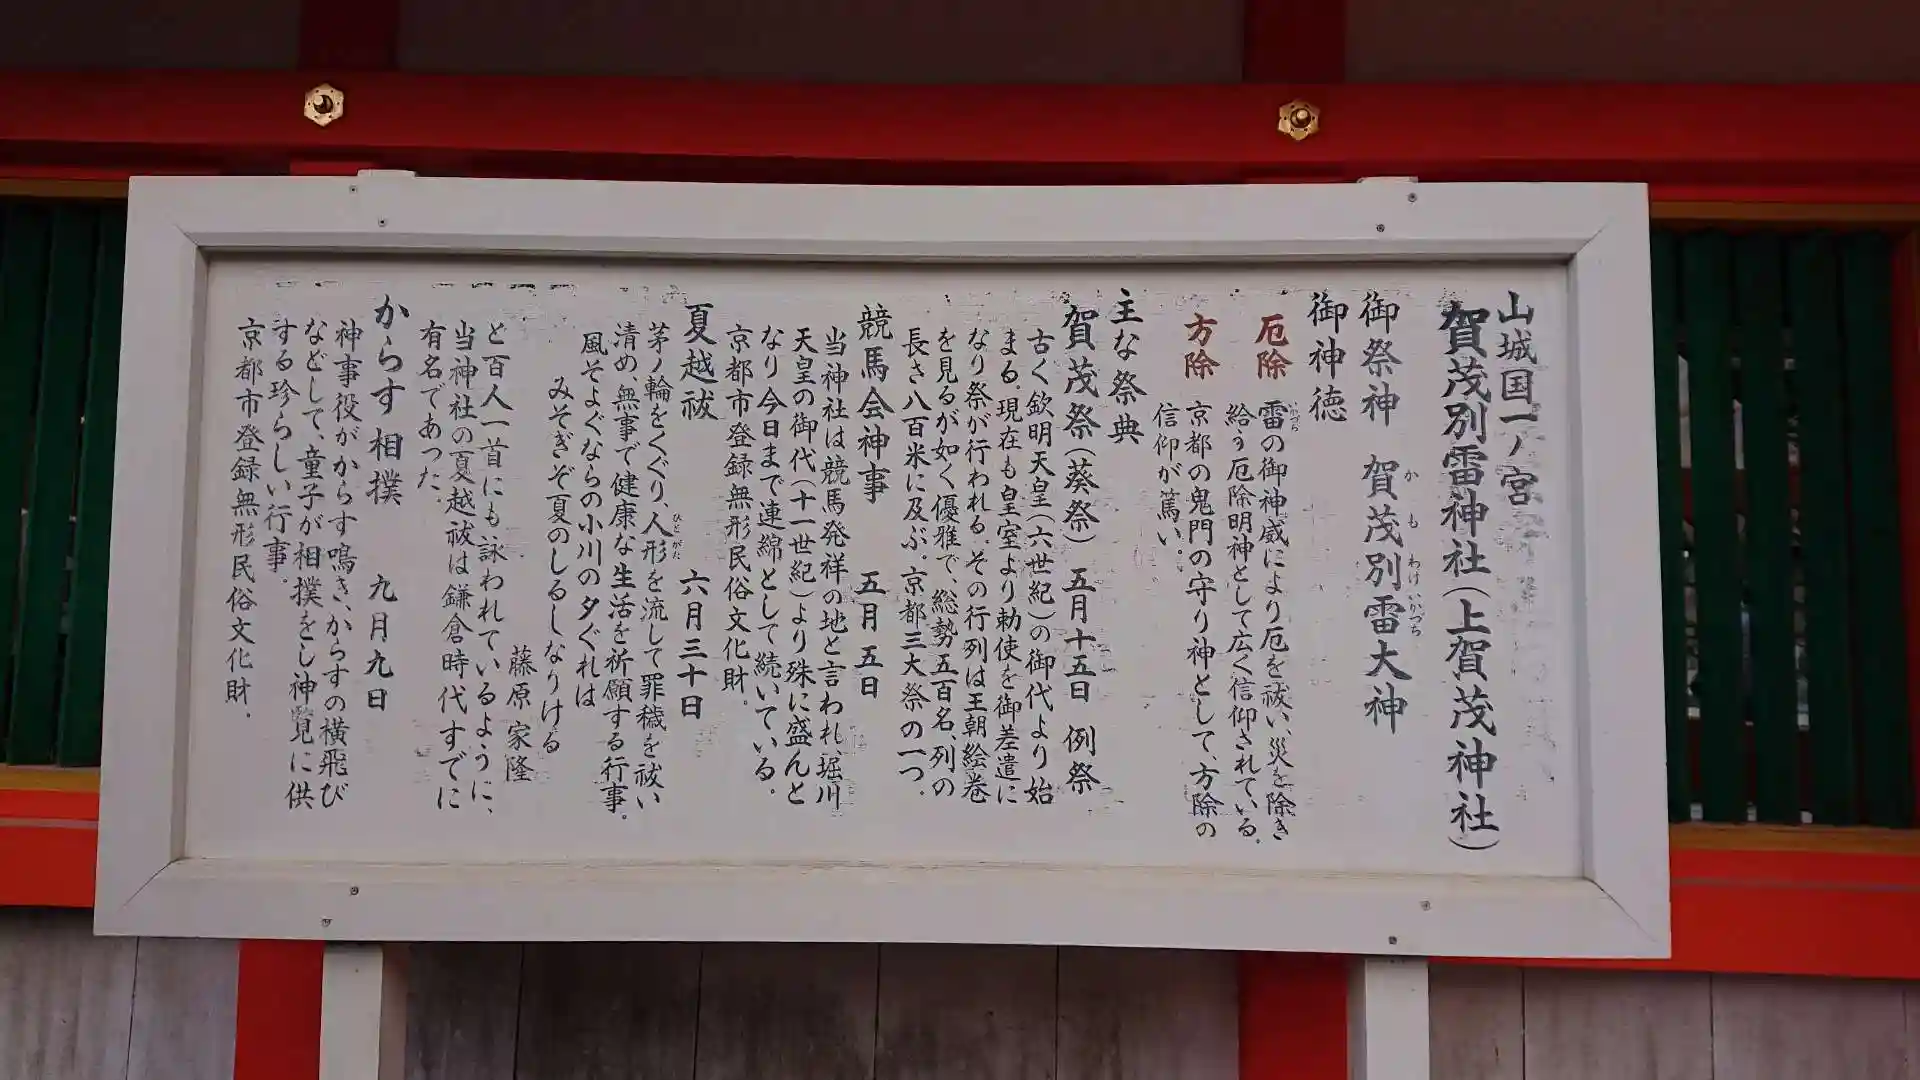 山城国一ノ宮
賀茂別雷神社(上賀茂神社)
御祭神 賀茂別雷大神
か も わけ いかづち
御神徳
厄除 雷の御神威により厄を祓い、災を除き
いかづち
給う厄除明神として広く信仰されている。
方除 京都の鬼門の守り神として、方除の
信仰が篤い。
主な祭典
賀茂祭(葵祭) 五月十五日 例祭
古く欽明天皇(六世紀)の御代より始
まる。現在も皇室より勅使を御差遣に
なり祭が行われる。その行列は王朝絵巻
を見るが如く優雅で、総勢五百名、列の
長さ八百米に及ぶ。京都三大祭の一つ。
競馬会神事 五月五日
当神社は競馬発祥の地と言われ、堀川
天皇の御代(十一世紀)より殊に盛んと
なり今日まで連綿として続いている。
京都市登録無形民俗文化財。
夏越祓 六月三十日
茅ノ輪をくぐり、人形を流して罪穢を祓い
ひとがた
清め、無事で健康な生活を祈願する行事。
風そよぐならの小川の夕ぐれは
みそぎぞ夏のしるしなりける
藤原家隆
と百人一首にも詠われているように、
当神社の夏越祓は鎌倉時代すでに
有名であった。
からす相撲 九月九日
神事役がからす鳴き、からすの横飛び
などして、童子が相撲をし神覧に供
する珍らしい行事。
京都市登録無形民俗文化財。